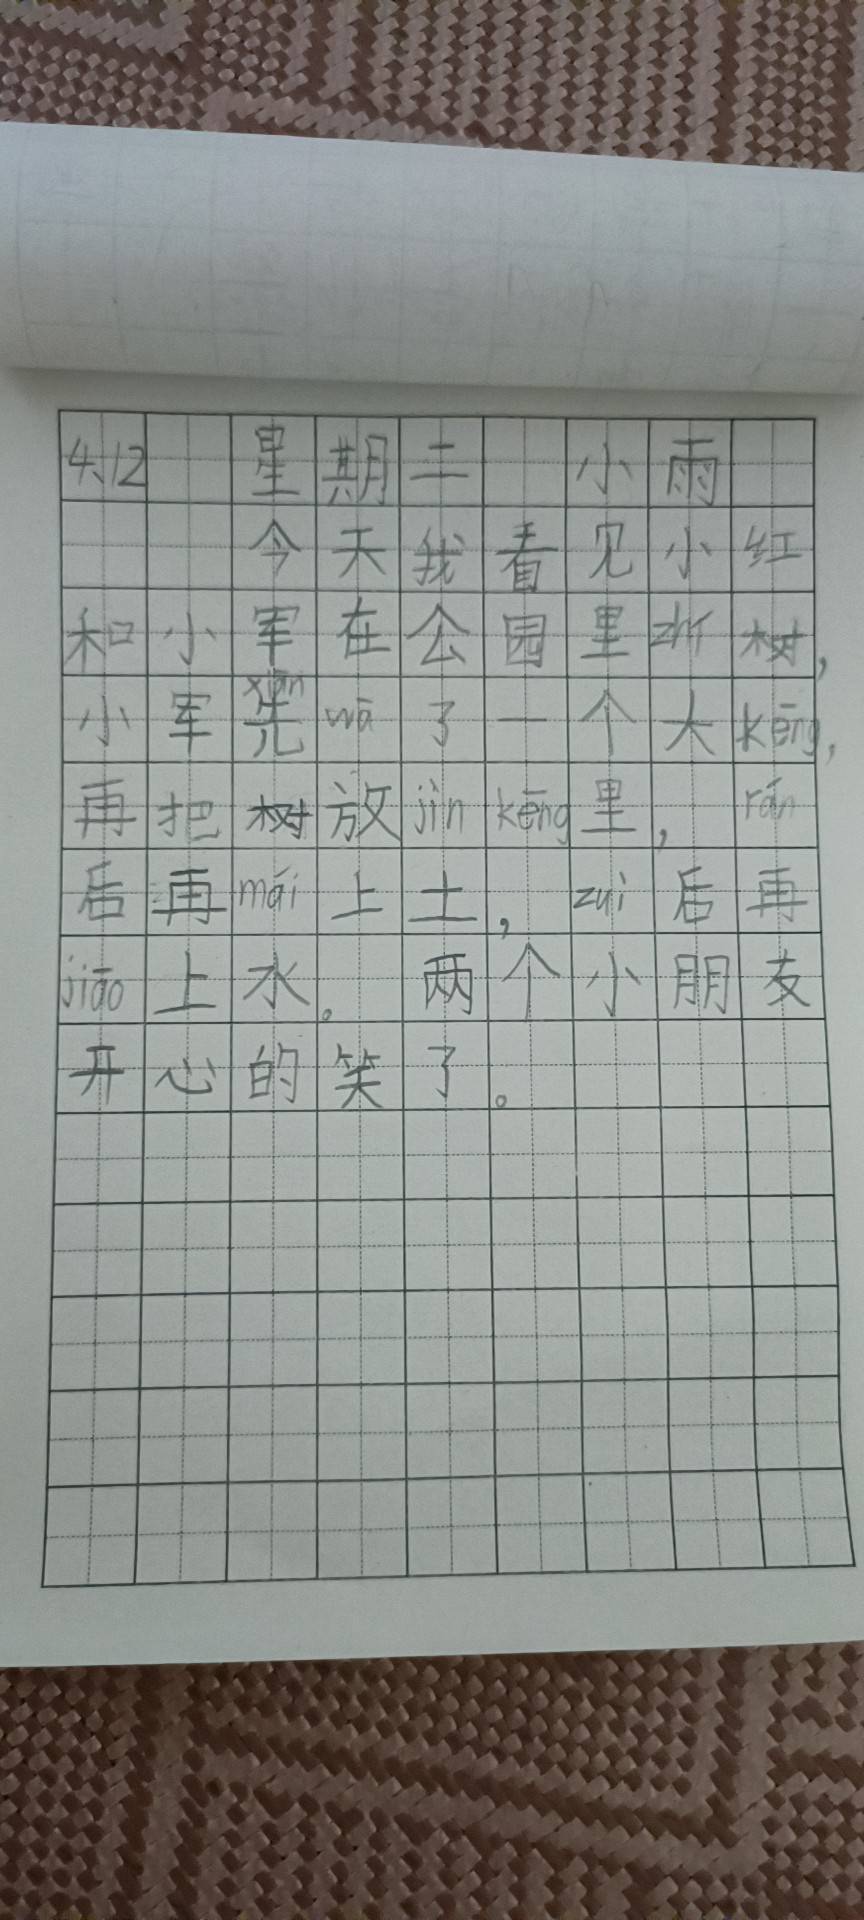 4.12 星期二 小雨
今天我看见小红
和小军在公园里zhí树,
小军先xiān wā了一个大kēng,
再把树放jìn kēng里, rán
后再mái上土, zuì后再
jiāo上水。两个小朋友
开心的笑了。